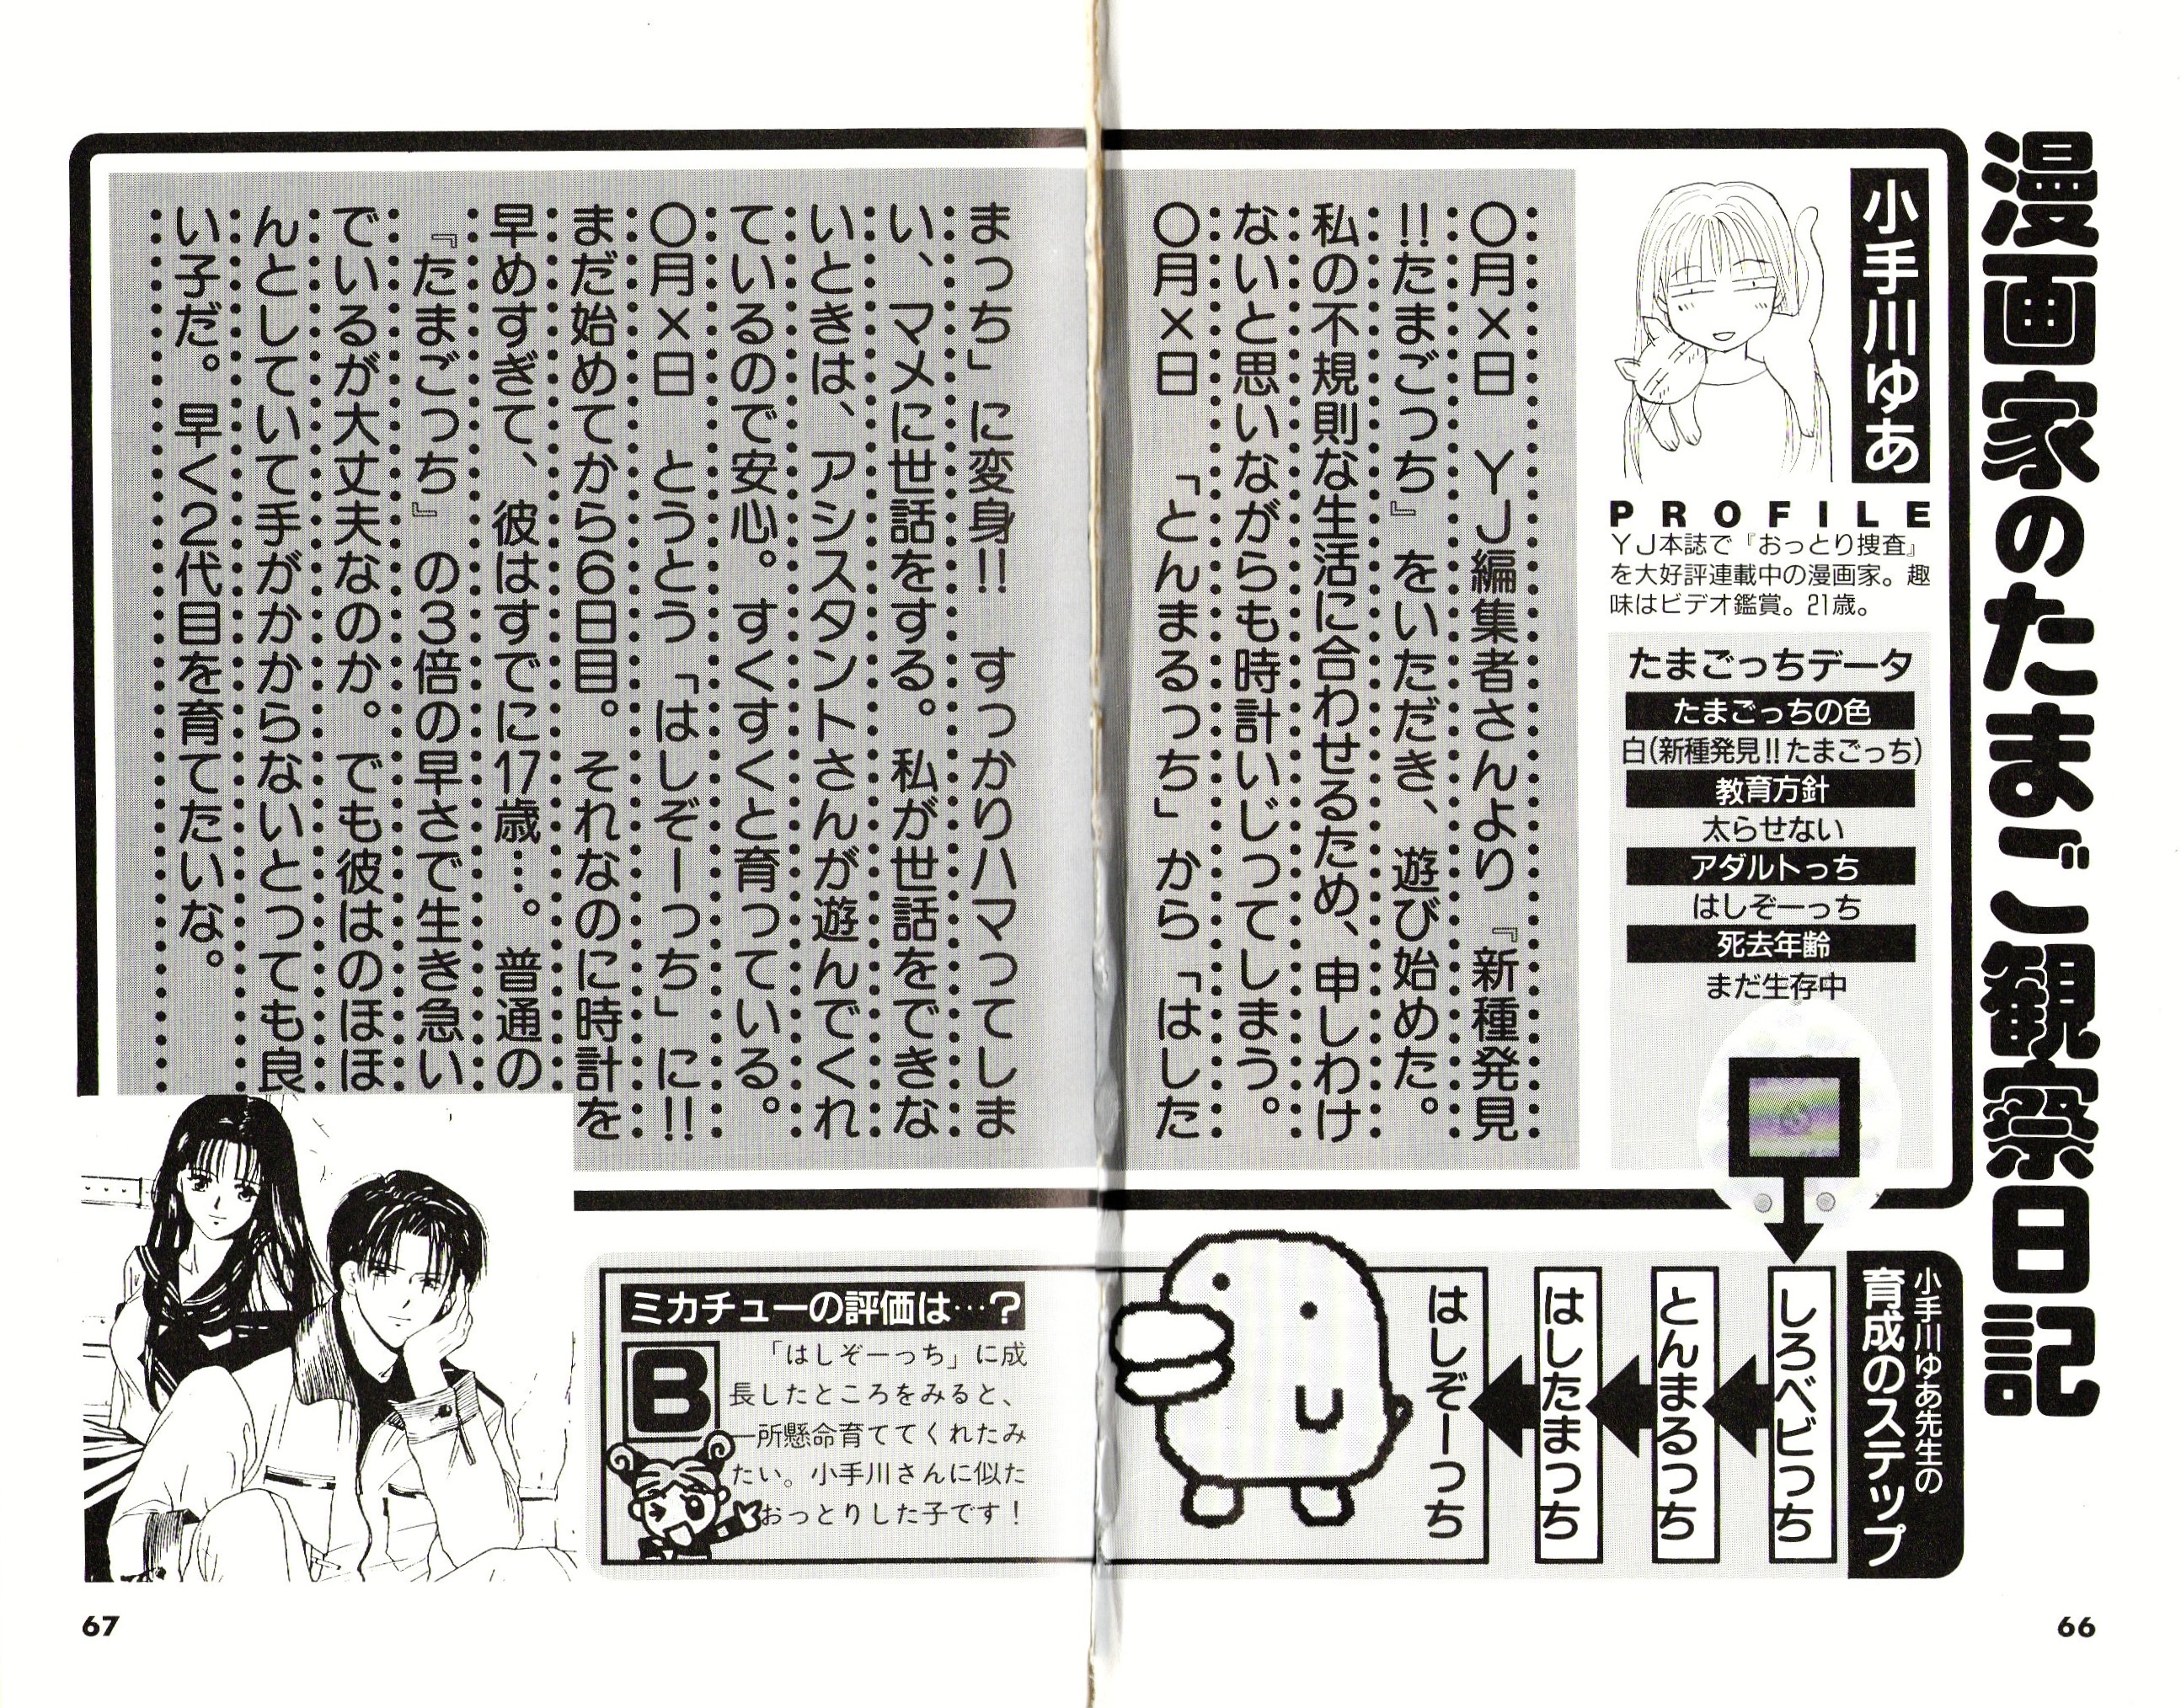 漫画家のたまご観察日記
小手川ゆあ
PROFILE
YJ本誌で『おっとり捜査』
を大好評連載中の漫画家。趣
味はビデオ鑑賞。21歳。
たまごっちデータ
たまごっちの色
白(新種発見!!たまごっち)
教育方針
太らせない
アダルトっち
はしぞーっち
死去年齢
まだ生存中
○月×日　YJ編集者さんより『新種発見
!!たまごっち』をいただき、遊び始めた。
私の不規則な生活に合わせるため、申しわけ
ないと思いながらも時計いじってしまう。
○月×日　「とんまるっち」から「はした
まっち」に変身!!　すっかりハマってしま
い、マメに世話をする。私が世話をできな
いときは、アシスタントさんが遊んでくれ
ているので安心。すくすくと育っている。
○月×日　とうとう「はしぞーっち」に!!
まだ始めてから6日目。それなのに時計を
早めすぎて、彼はすでに17歳…。普通の
『たまごっち』の3倍の早さで生き急い
でいるが大丈夫なのか。でも彼はのほほ
んとしていて手がかからないとっても良
い子だ。早く2代目を育てたいな。
小手川ゆあ先生の
育成のステップ
しろベビっち
とんまるっち
はしたまっち
はしぞーっち
ミカチューの評価は…?
B
「はしぞーっち」に成
長したところをみると、
一所懸命育ててくれたみ
たい。小手川さんに似た
おっとりした子です！
66
67